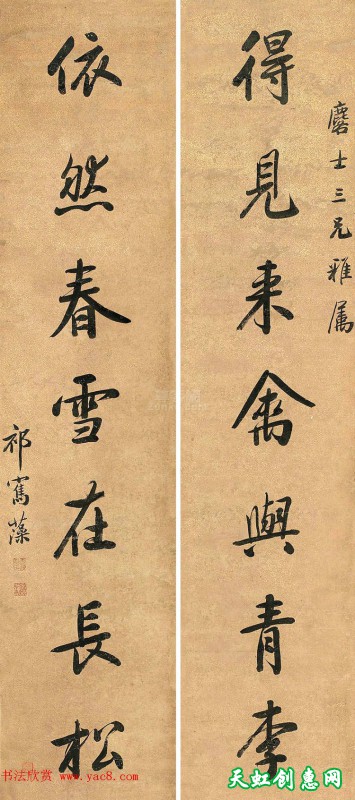 麐士三兄雅属
得見来禽與青李
依然春雪在長松
祁寯藻
书法欣赏 www.yac8.com
天虹创惠网